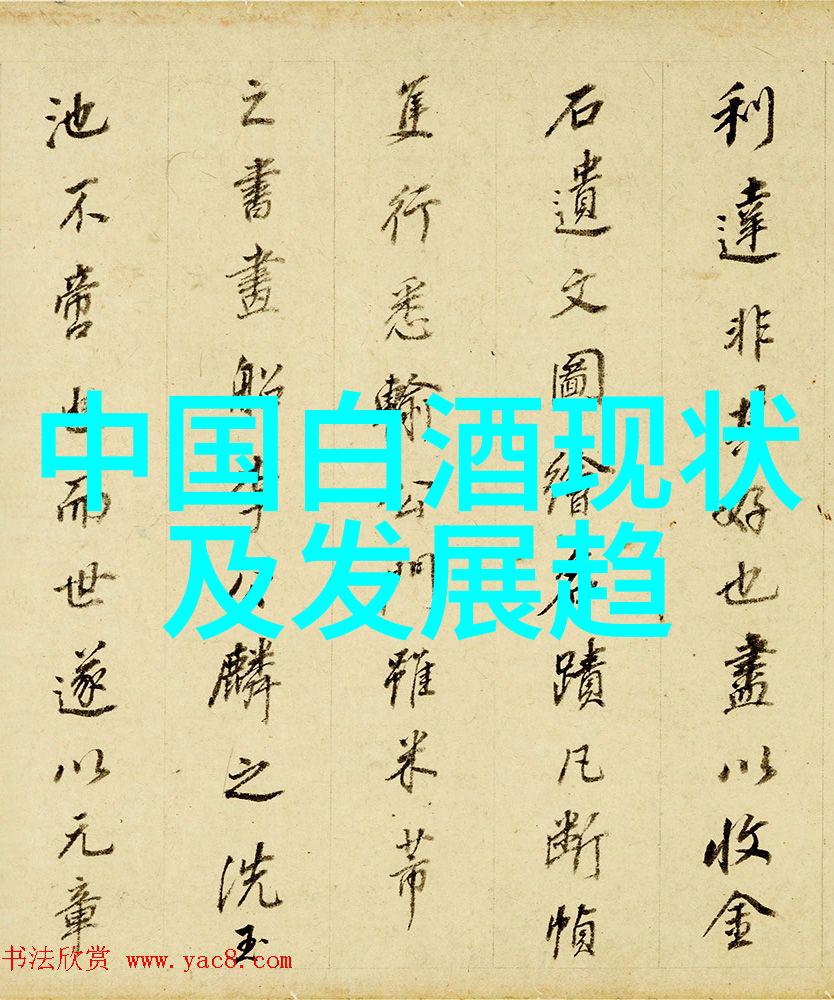 中国白酒现状
及发展趋
利達非其好也盡以收金
石遺文圖繪名蹟凡斷幀
隻行悉輸公門雖米芾
之書畫船李公麟之洗玉
池不啻也而世遂以元章
书法欣赏 www.yac8.com